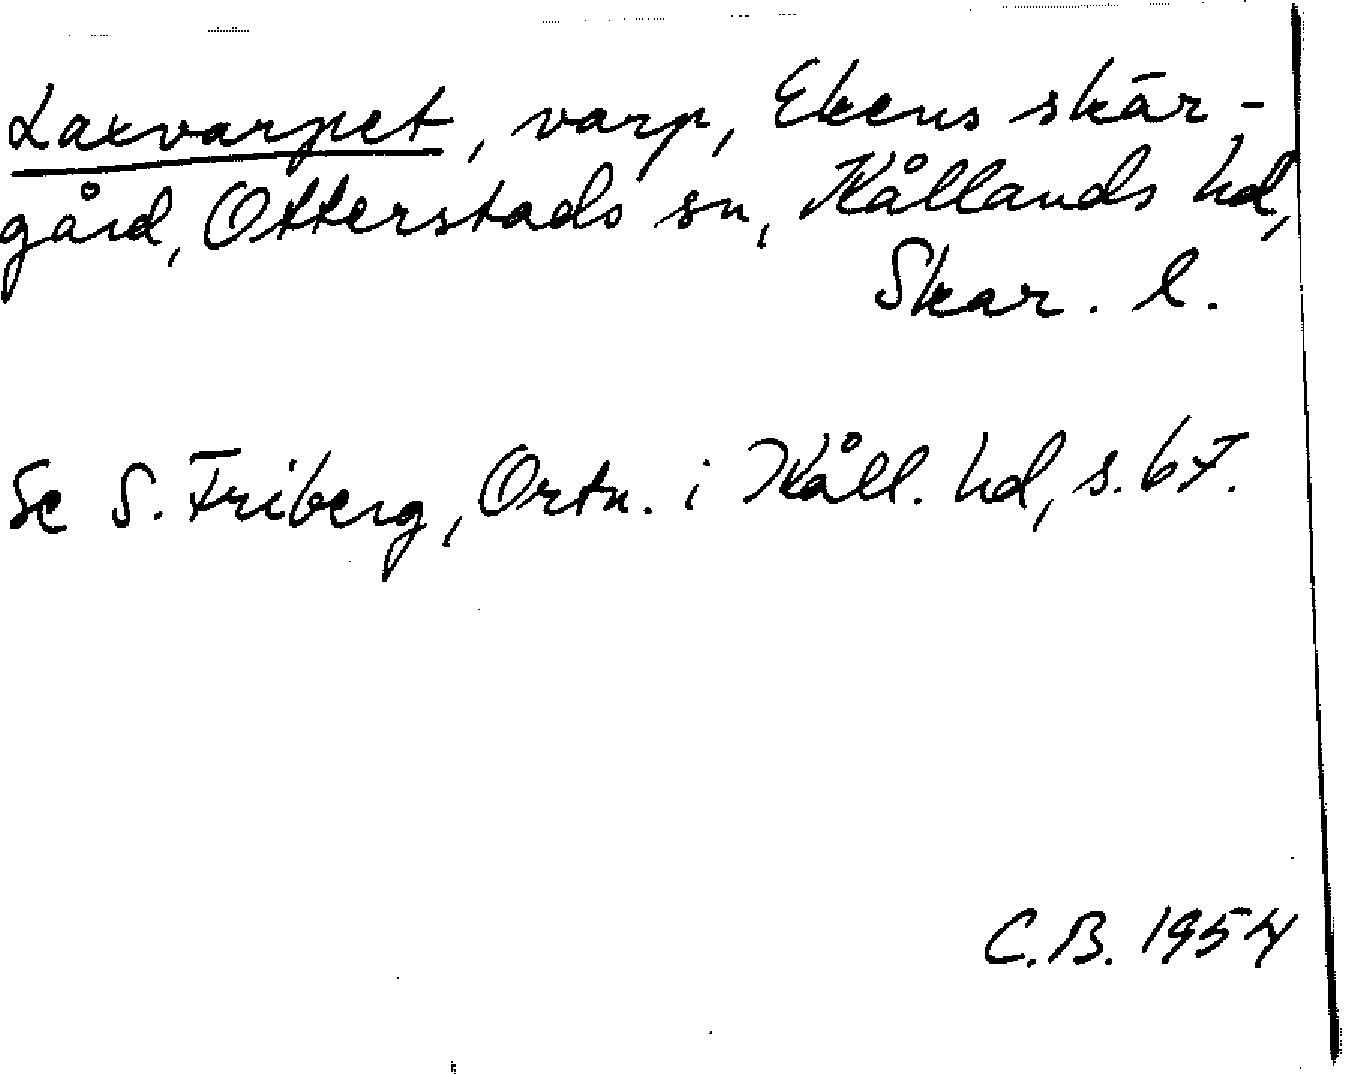 Laxvarpet, varp, Ekens skär-
gård, Otterstads sn, Kållands hd,
Skar. l.
Se S. Friberg, Ortn. i Kåll. hd, s. 67.
C.B. 1954